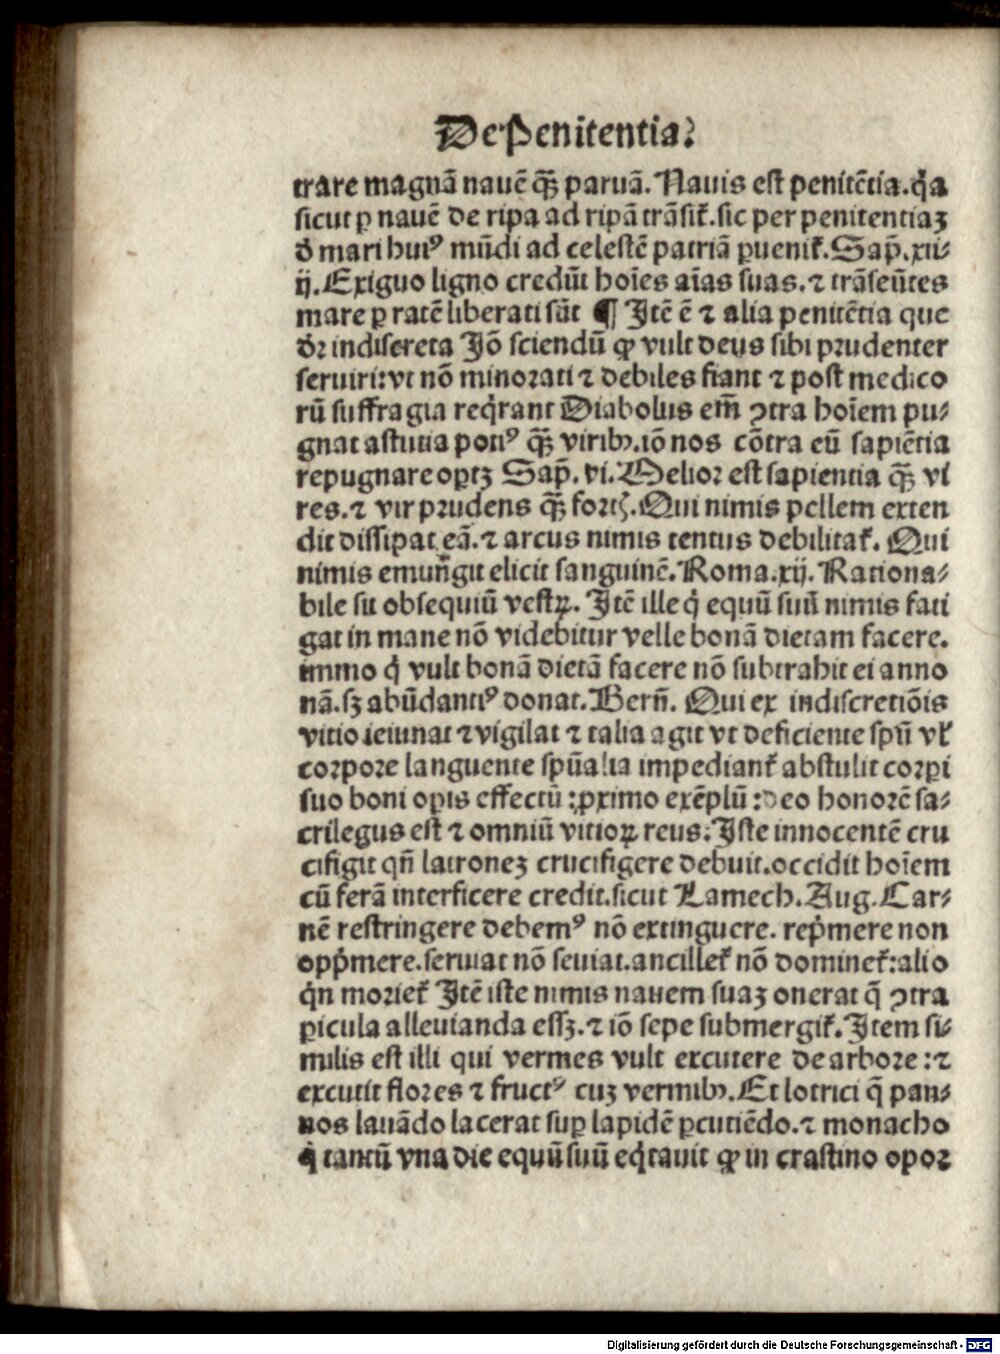 De Penitentia.
trare magnā nauē q̄ꝫ paruā. Nauis est penitētia. q̇a
sicut ꝑ nauē de ripa ad ripā trāsit᷑. sic per penitentiaꝫ
ð mari huiꝰ mūdi ad celestē patriā ꝑuenit᷑. Sap̄. xii⸗
ij. Exiguo ligno credūt hoīes aīas suas. ⁊ trāseūtes
mare ꝑ ratē liberati sūt ¶ Itē ē ⁊ alia penitētia que
ðꝛ indiscreta Iō sciendū ꝙ vult deus sibi prudenter
seruiri: vt nō minorati ⁊ debiles fiant ⁊ post medico
rū suffragia req̇rant Diabolus em̄ ꝯtra hoīem pu⸗
gnat astutia potiꝰ q̄ꝫ viribꝰ. iō nos cōtra eū sapiētia
repugnare oꝑtꝫ Sap̄. vi. Melior est sapientia q̄ꝫ vi
res. ⁊ vir prudens q̄ꝫ fortꝭ. Qui nimis pellem exten
dit dissipat eā. ⁊ arcus nimis tentus debilitat᷑. Qui
nimis emūgit elicit sanguinē. Roma. xij. Rationa⸗
bile sit obsequiū vestꝝ. Itē ille q̇ equū suū nimis fati
gat in mane nō videbitur velle bonā dietam facere.
immo q̇ vult bonā dietā facere nō subtrahit ei anno
nā. sꝫ abūdantiꝰ donat. Bern̄. Qui ex indiscretiōis
vitio ieiunat ⁊ vigilat ⁊ talia agit vt deficiente spū vl᷑
corpore languente spūalia impediant᷑ abstulit corꝑi
suo boni oꝑis effectū: ꝓximo exēplū: deo honorē sa⸗
crilegus est ⁊ omniū vitioꝝ reus. Iste innocentē cru
cifigit qn̄ latroneꝫ crucifigere debuit. occidit hoīem
cū ferā interficere credit. sicut Lamech. Aug. Car⸗
nē restringere debemꝰ nō extinguere. reṗmere non
opṗmere. seruiat nō seuiat. ancillet᷑ nō dominet᷑: alio
q̇n moriet᷑ Itē iste nimis nauem suaꝫ onerat q̄ ꝯtra
ꝑicula alleuianda essꝫ. ⁊ iō sepe submergit᷑. Item si⸗
milis est illi qui vermes vult excutere de arbore: ⁊
excutit flores ⁊ fructꝰ cuꝫ vermibꝰ. Et lotrici q̄ pan⸗
nos lauādo lacerat suꝑ lapidē ꝑcutiēdo. ⁊ monacho
q̇ tantū vna die equū suū eq̇tauit ꝙ in crastino opor
Digitalisierung gefördert durch die Deutsche Forschungsgemeinschaft - DFG